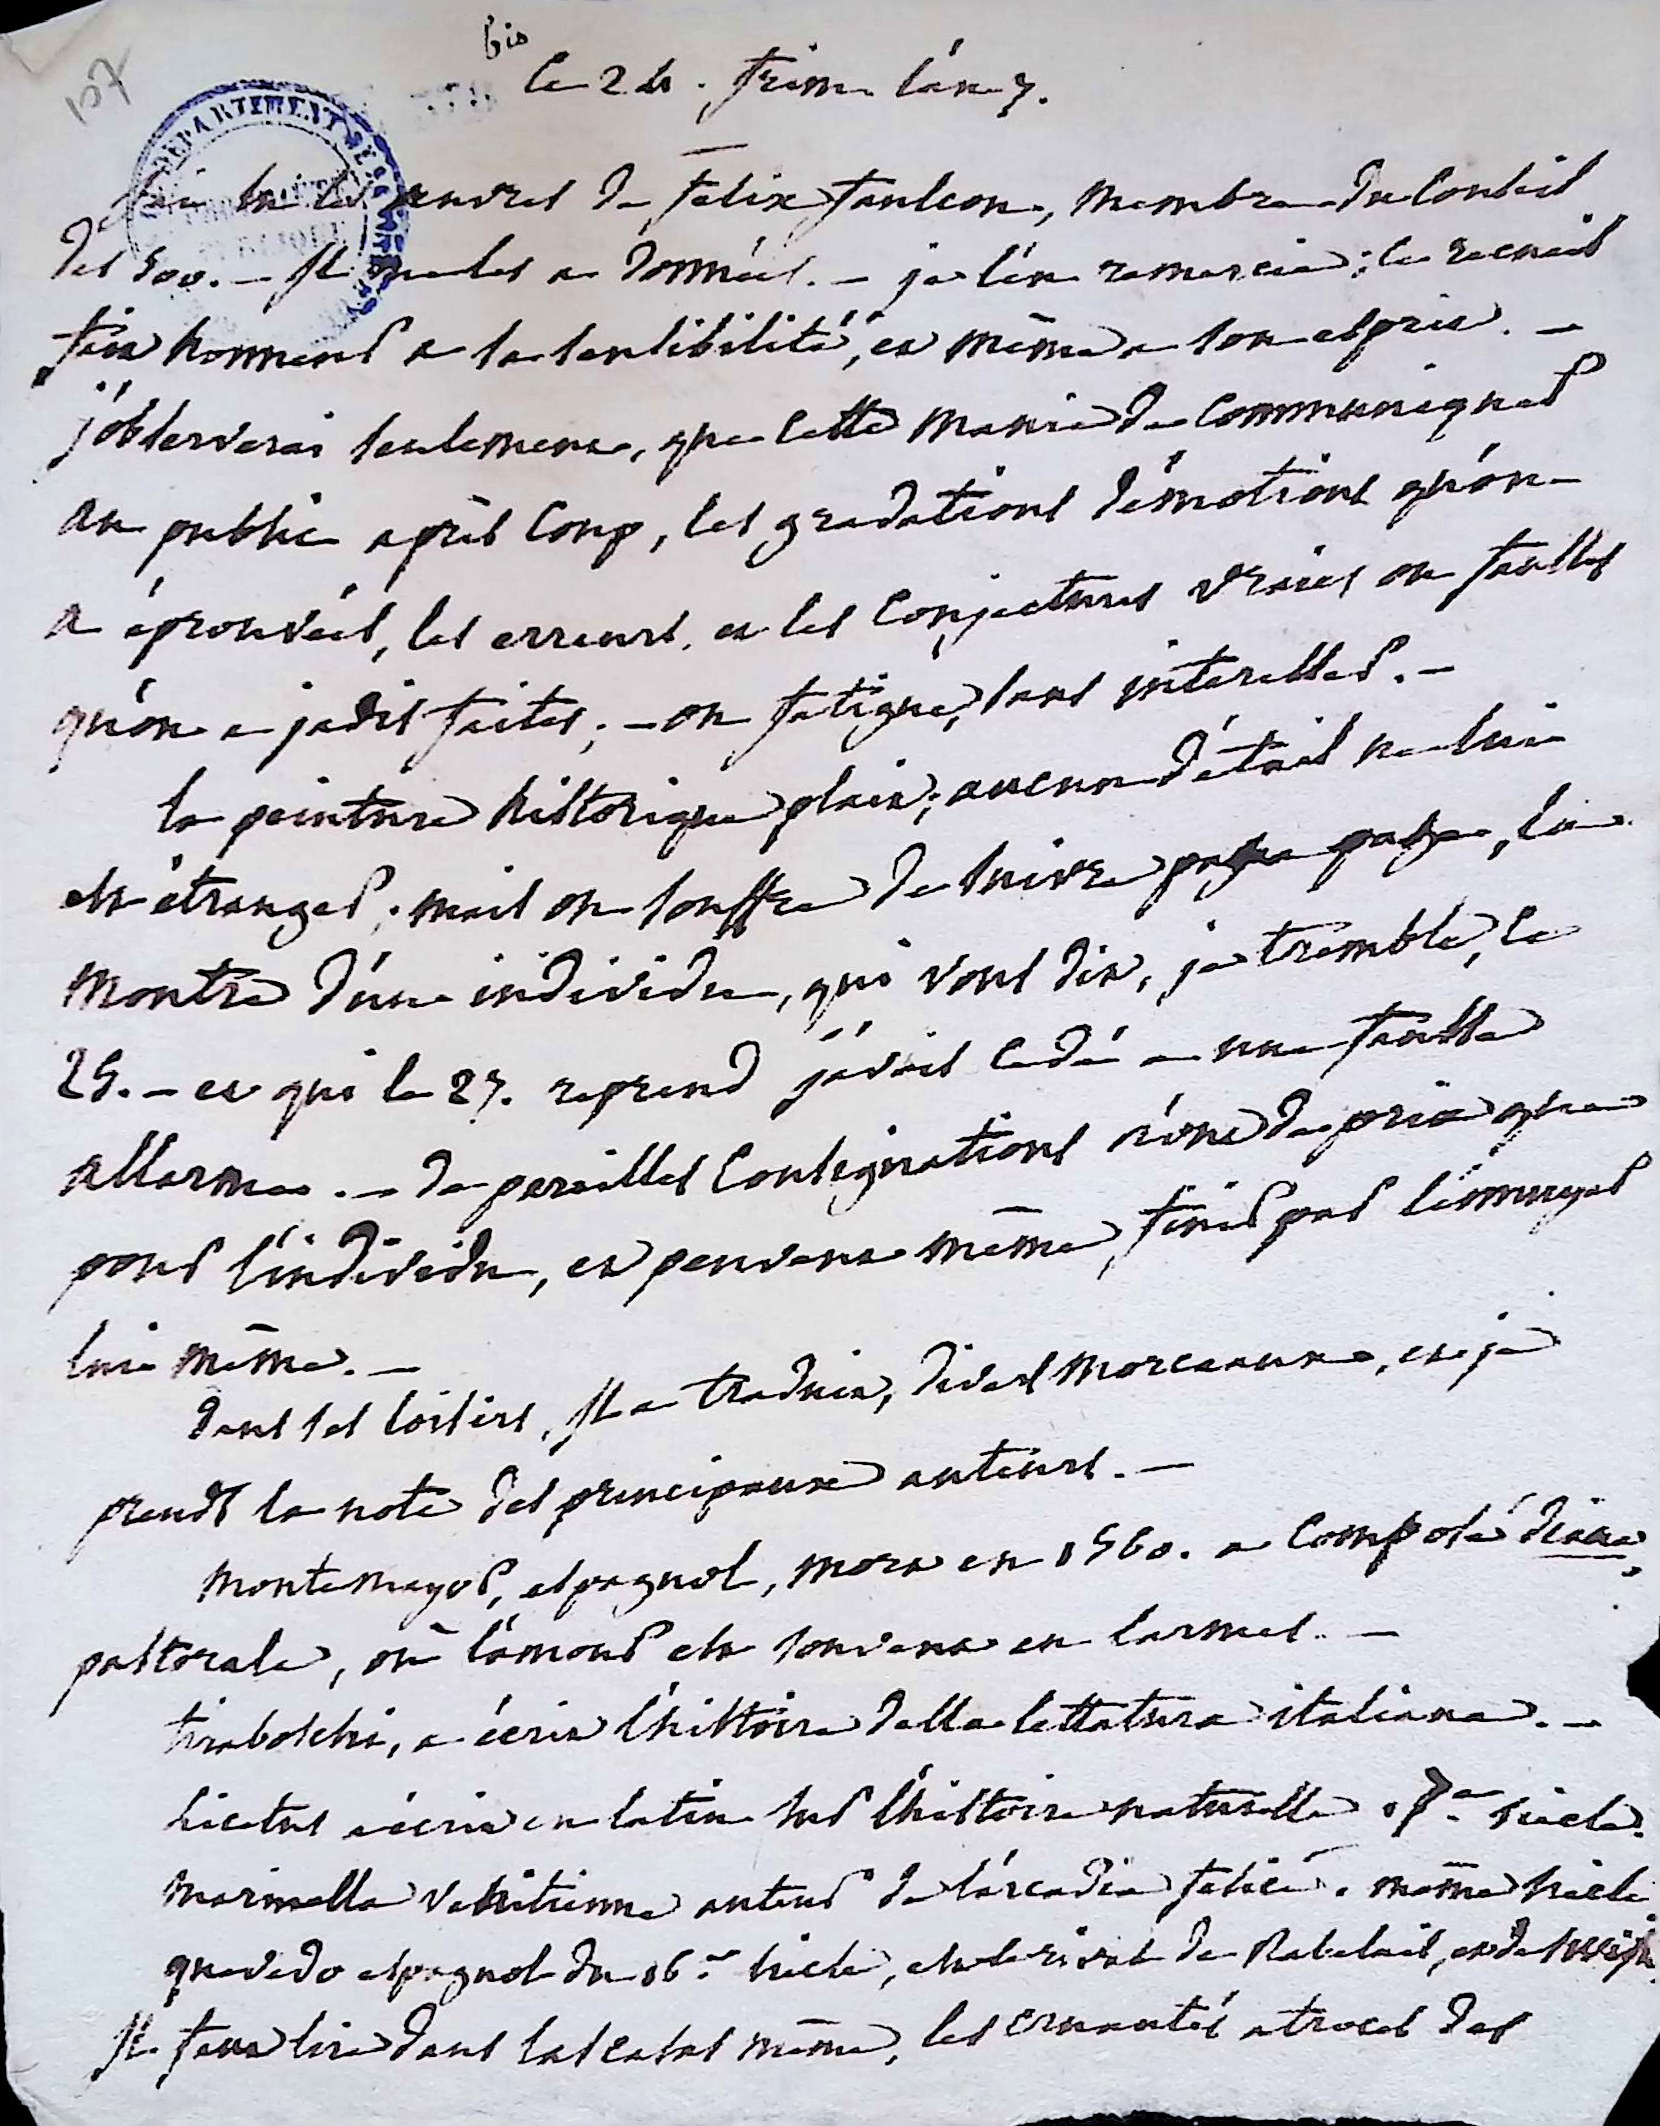 107
bis
le 24. frim. l'an 7.
DÉPARTEMENT DE
j'ai lu les œuvres de félix faulcon, membre du Conseil
des 500. – Il me les a données. – je l'en remercie ; ce recueil
fait honneur a sa sensibilité, et même a son esprit. –
j'observerai seulement, que cette manie de communiquer
au public après coup, les gradations d'émotions qu'on
a éprouvées, les erreurs, et les conjectures vraies ou fausses
qu'on a jadis faites ; – on fatigue, sans intéresser. –
la peinture historique plait ; aucun détail ne lui
est étranger ; mais on souffre de suivre page a page, la
montre d'un individu, qui vous dit, je tremble, le
25. – et qui le 27. reprend j'avois cédé a une fausse
allarme. – de pareilles consignations n'ont de prix que
pour l'individu, et peuvent même, finir par l'ennuyer
lui même. –
dans ses loisirs, Il a traduit, divers morceaux, et je
prends la note des principaux auteurs. –
montemayor, espagnol, mort en 1560. a composé diane,
pastorale, où l'amour est souvent en larmes. –
tiraboschi, a écrit l'histoire della lettatura italiana. –
a écrit en latin sur l'histoire naturelle. 17.e siècle.
marinella vénitienne auteur de l'arcadia felice. même siècle
quevedo espagnol du 16.e siècle, est le rival de Rabelais, et de swift.
Il faut lire dans las casas même, les cruautés atroces des